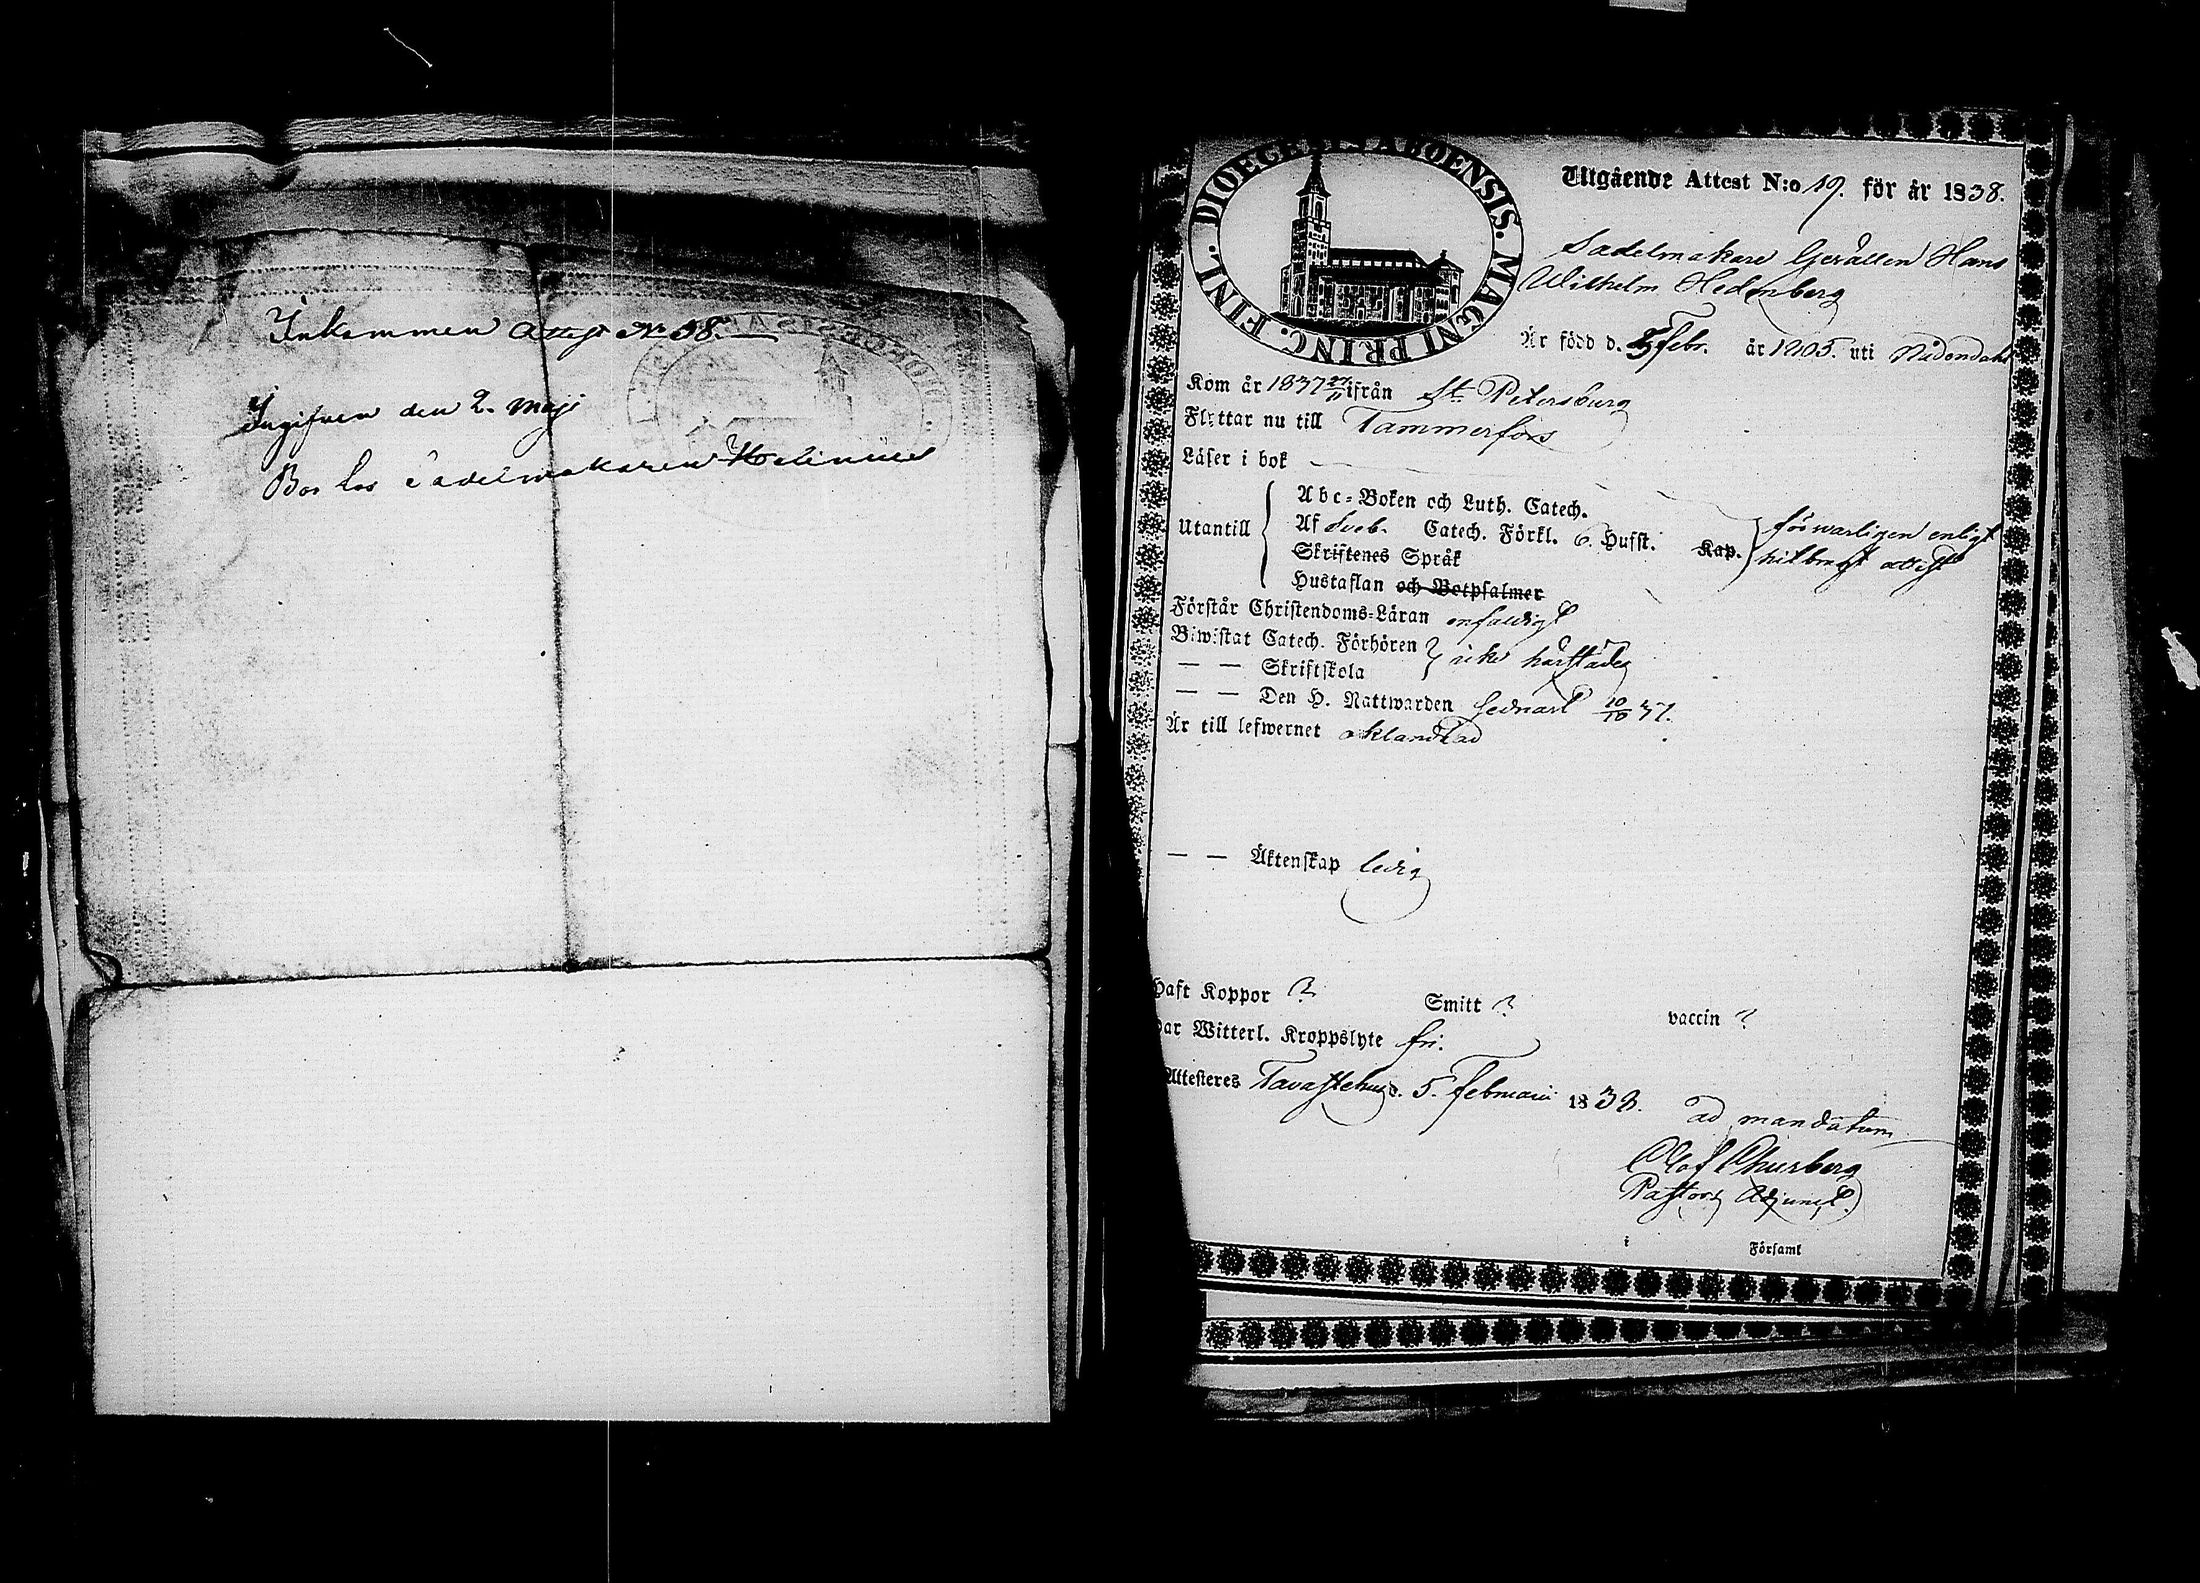 Inkommen Attest No 38.
Ingifven den 2. Maji
Bor hos Sadelmakaren
DIOECESIS ABOENSIS. MAGNI PRINC. FINL.
Utgående Attest N:o 19. för år 1838.
Sadelmakare Gesällen Hans
Wilhelm Hedenberg
Är född d. Febr. år 1805. uti Nådendahl
Kom år 1837 27/11 ifrån St Petersburg
Flyttar nu till Tammerfors
Läser i bok
Utantill
Abc-Boken och Luth. Catech.
Af Sveb. Catech. Förkl. 6. Hufst. Kap.
Skriftenes Språk
Hustaflan och Botpsalmer
förswarligen enligt
hitbragt attest
Förstår Christendoms-Läran enfaldigt
Biwistat Catech. Förhören
— — Skriftskola
icke härstädes
— — Den H. Nattwarden sednast 10/10 37.
Är till lefwernet oklandrad
— — Äktenskap ledig
Haft Koppor ? Smitt ? vaccin ?
Har Witterl. Kroppslyte fri.
Attesteres Tavastehus d. 5. Februarii 1838.
ad mandatum
Olof Chursberg
Pastors Adjunct.
i Församl